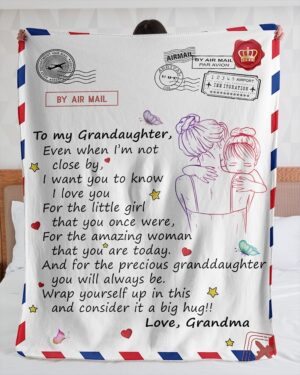 AIRMAIL
BY AIR MAIL
PAR AVION
1 2 3 4 5 AIRPORT
BY AIR MAIL
To my Grandaughter,
Even when I'm not
close by,
I want you to know
I love you
For the little girl
that you once were,
For the amazing woman
that you are today.
And for the precious granddaughter
you will always be.
Wrap yourself up in this
and consider it a big hug!!
Love, Grandma